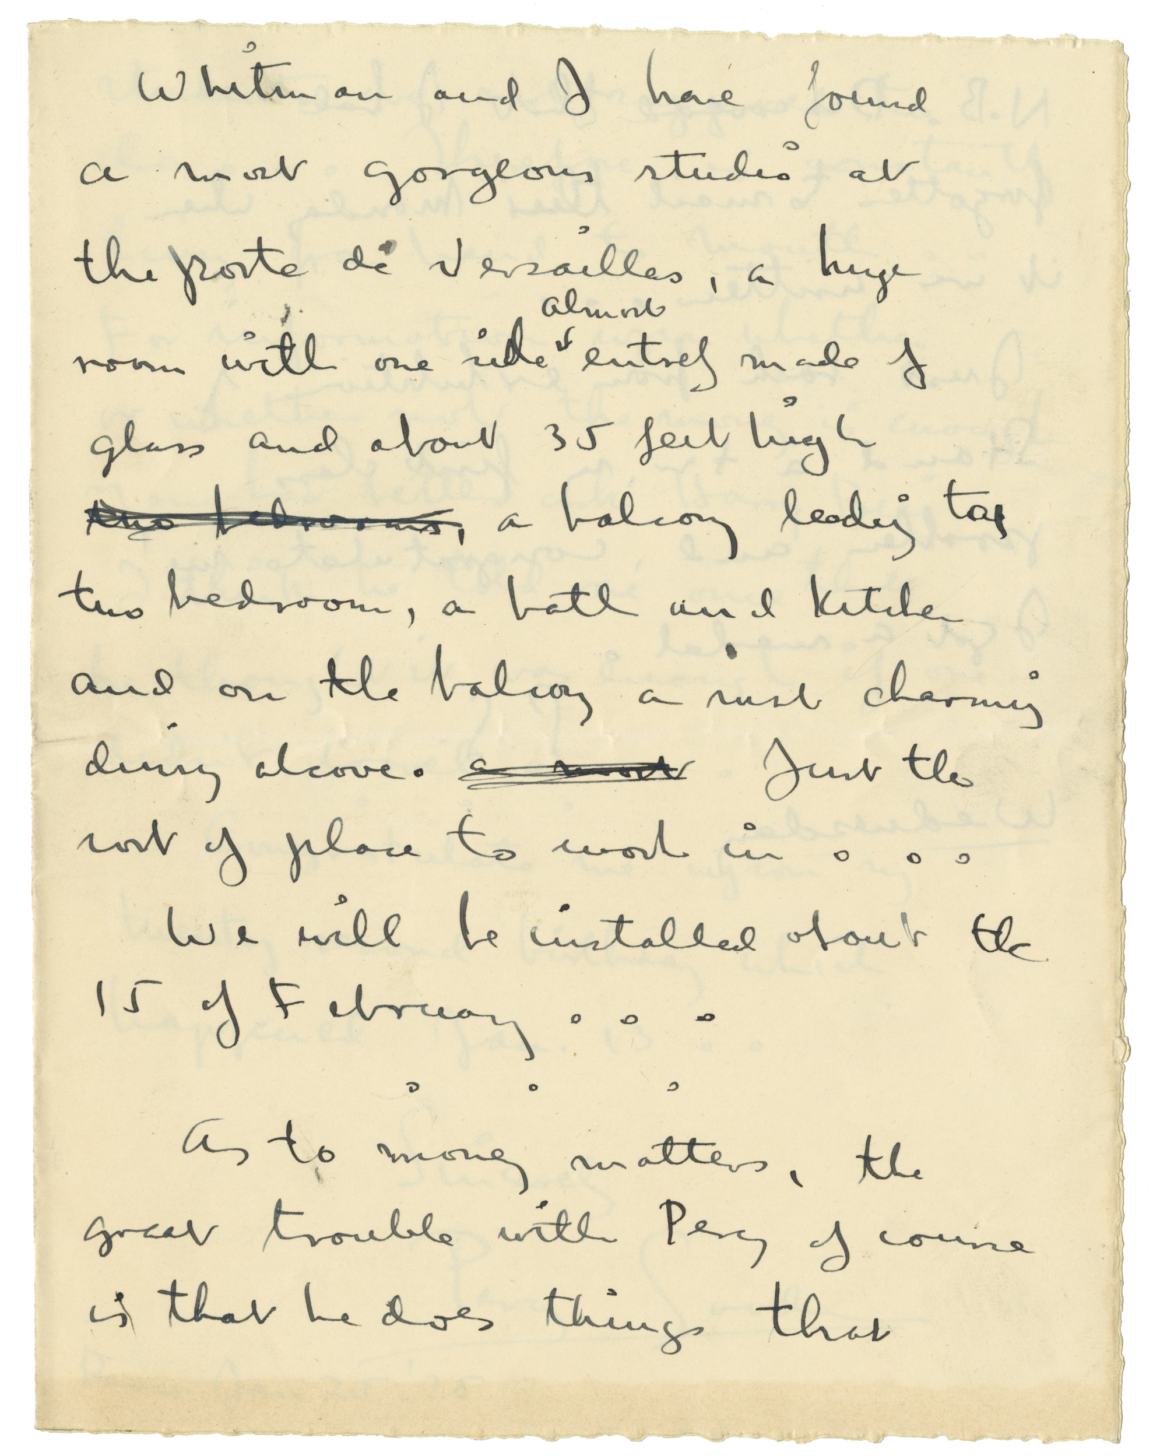 Whitman and I have found
a most gorgeous studio at
the porte de Versailles, a huge
almost
room with one side entirely made of
glass and about 35 feet high
two bedrooms, a balcony leading to
two bedroom, a bath and kitchen
and on the balcony a most charming
dining alcove. a most Just the
sort of place to work in . . .
We will be installed about the
15 of February . . .
. . .
As to money matters, the
great trouble with Percy of course
is that he does things that